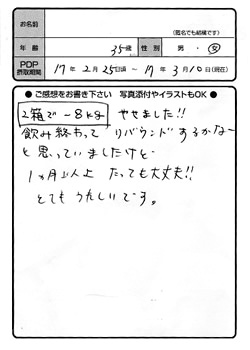 お名前
(匿名でも結構です)
年齢 35歳 性別 男・女
PDP摂取期間 17年2月25日頃〜17年3月10日(現在)
●ご感想をお書き下さい 写真添付やイラストもOK●
2箱で −8kg やせました!!
飲み終わって リバウンドするかなー
と思っていましたけど
1ヵ月以上 たっても大丈夫!!
とても うれしいです。